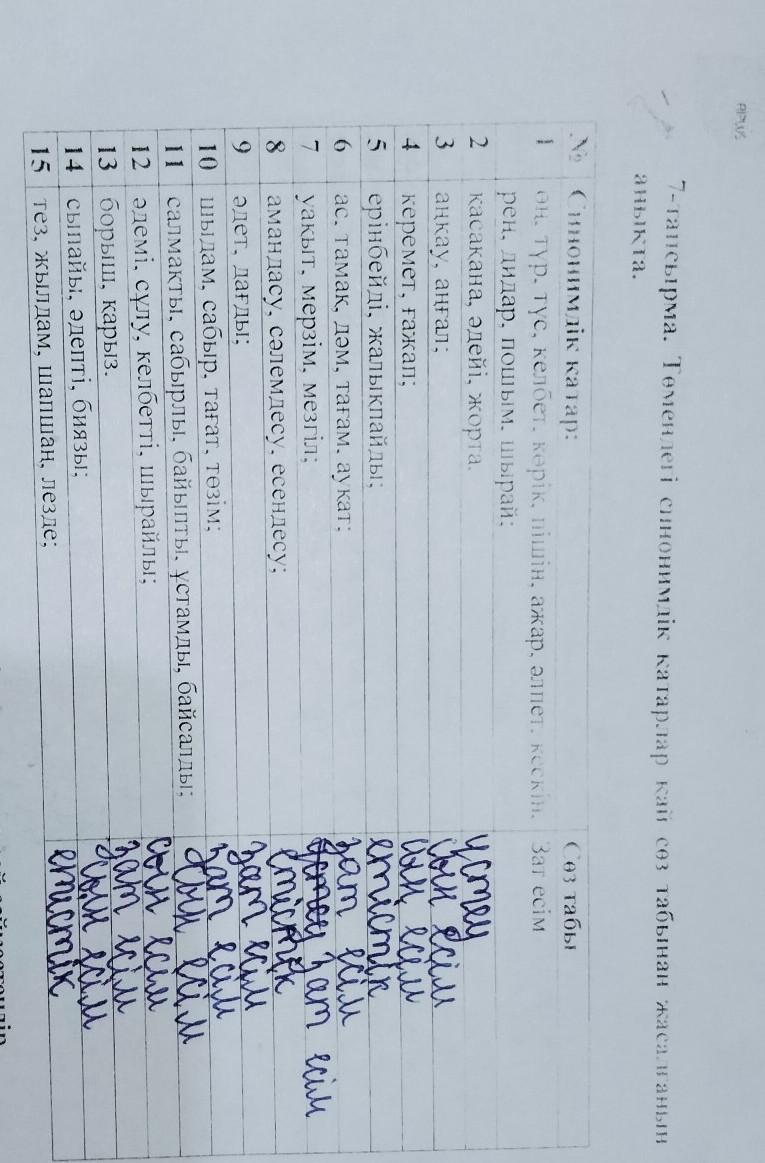 7-тапсырма. Төмендегі синонимдік қатарлар қай сөз табынан жасалғанын
анықта.
№ Синонимдік қатар: Сөз табы
1 өң, түр, түс, келбет, көрік, пішін, ажар, әлпет, кескін, Зат есім
рең, дидар, пошым, шырай;
2 қасақана, әдейі, жорта. үстеу
3 аңқау, аңғал; сын есім
4 керемет, ғажап; сың есім
5 ерінбейді, жалықпайды; етістік
6 ас, тамақ, дәм, тағам, ауқат; зат есім
7 уақыт, мерзім, мезгіл; зат есім
8 амандасу, сәлемдесу, есендесу; етістік
9 әдет, дағды; зат есім
10 шыдам, сабыр, тағат, төзім; зат есім
11 салмақты, сабырлы, байыпты, ұстамды, байсалды; сын есім
12 әдемі, сұлу, келбетті, шырайлы; сын есім
13 борыш, қарыз. зат есім
14 сыпайы, әдепті, биязы; сын есім
15 тез, жылдам, шапшаң, лезде; етістік